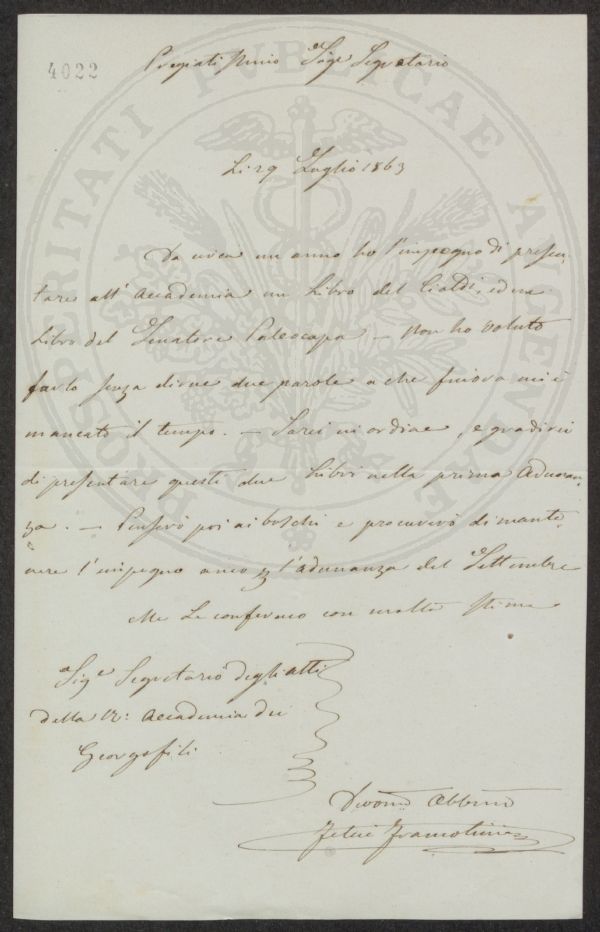 4022
Pregiatissimo Sigr Segretario
Li 29 Luglio 1863
Da circa un anno ho l'impegno di presen-
tare all' Accademia un Libro del Cialdi, ed un
Libro del Senatore Paleocapa — Non ho voluto
farlo senza dirne due parole e che finora mi è
mancato il tempo. — Sarei in ordine, e gradirei
di presentare questi due Libri nella prima Adunan-
za. — Penserò poi ai boschi e procurerò di mante-
nere l'impegno anco l'adunanza del Settembre
Me Le confermo con molta stima
Sige Segretario degli atti
della R: Accademia dei
Georgofili
Devomo Obbmo
Felice Francolini
PROSPERITATI PUBLICAE AUGENDAE